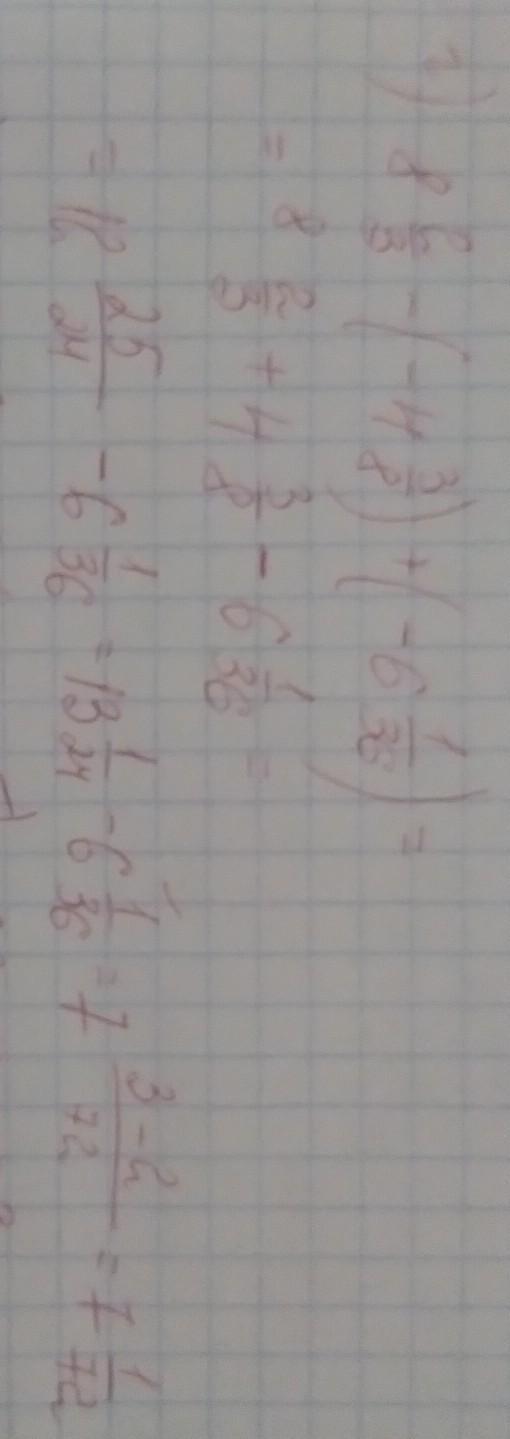 1) 8 2/3 - (- 4 3/8) + (- 6 1/36) =
= 8 2/3 + 4 3/8 - 6 1/36 =
= 12 25/24 - 6 1/36 = 13 1/24 - 6 1/36 = 7 (3-2)/72 = 7 1/72